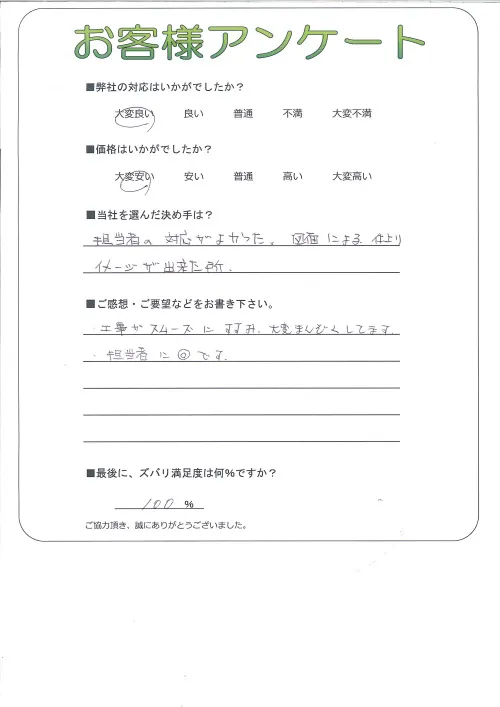 お客様アンケート
■弊社の対応はいかがでしたか？
大変良い 良い 普通 不満 大変不満
■価格はいかがでしたか？
大変安い 安い 普通 高い 大変高い
■当社を選んだ決め手は？
担当者の対応がよかった。図面による 仕上り
イメージが出来た所.
■ご感想・ご要望などをお書き下さい。
・工事がスムーズにすすみ、大変まんぞくしてます.
・担当者に◎です.
■最後に、ズバリ満足度は何%ですか？
100 %
ご協力頂き、誠にありがとうございました。